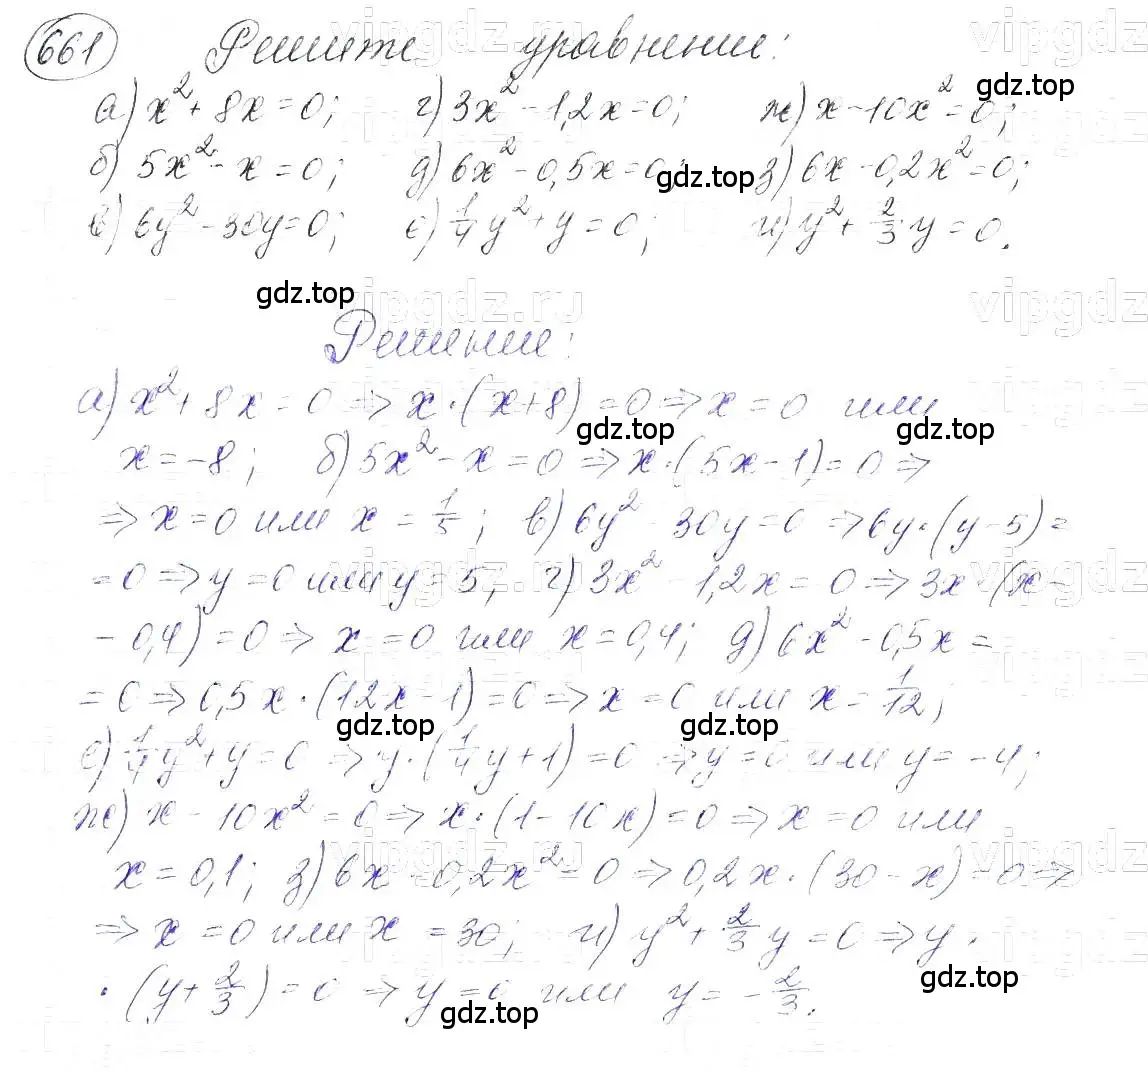 661 Решите уравнение:
а) x² + 8x = 0; г) 3x² - 1,2x = 0; ж) x - 10x² = 0;
б) 5x² - x = 0; д) 6x² - 0,5x = 0; з) 6x - 0,2x² = 0;
в) 6y² - 30y = 0; е) 1/4 y² + y = 0; и) y² + 2/3 y = 0.
Решение:
а) x² + 8x = 0 => x·(x+8) = 0 => x = 0 или
x = -8; б) 5x² - x = 0 => x·(5x-1) = 0 =>
=> x = 0 или x = 1/5; в) 6y² - 30y = 0 => 6y·(y-5) =
= 0 => y = 0 или y = 5; г) 3x² - 1,2x = 0 => 3x·(x-
- 0,4) = 0 => x = 0 или x = 0,4; д) 6x² - 0,5x =
= 0 => 0,5x·(12x-1) = 0 => x = 0 или x = 1/12;
е) 1/4 y² + y = 0 => y·(1/4 y + 1) = 0 => y = 0 или y = -4;
ж) x - 10x² = 0 => x·(1-10x) = 0 => x = 0 или
x = 0,1; з) 6x - 0,2x² = 0 => 0,2x·(30-x) = 0 =>
=> x = 0 или x = 30; и) y² + 2/3 y = 0 => y·
·(y + 2/3) = 0 => y = 0 или y = -2/3.
gdz.top
gdz.top
gdz.top
gdz.top
gdz.top
gdz.top
gdz.top
gdz.top
gdz.top
gdz.top
vipgdz.ru
vipgdz